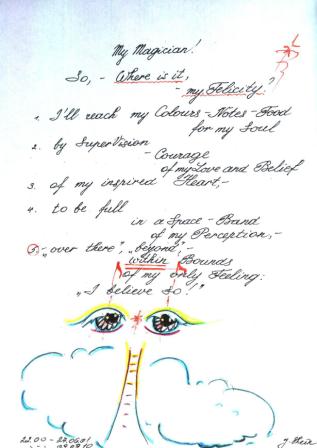 My Magician!
So, - Where is it,
- my Felicity?
1. I'll reach my Colours - Notes - Food
for my Soul
2. by SuperVision
- Courage
of my Love and Belief
3. of my inspired Heart, -
4. to be full
in a Space - Band
of my Perception, -
5. - „over there", „beyond", -
within Bounds
of my only Feeling:
„I believe so!"
22.00 -